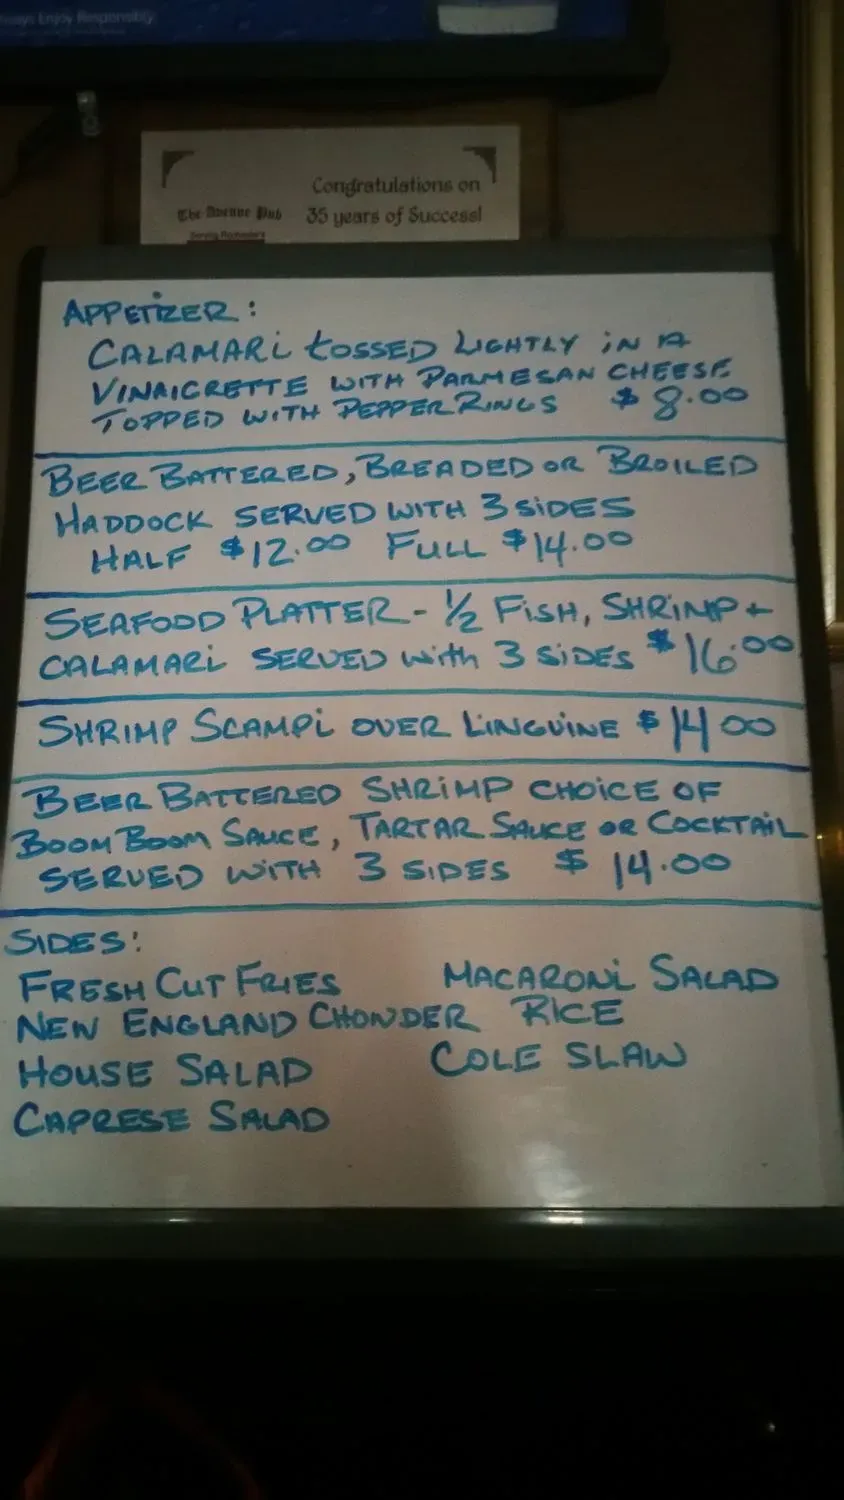 Always Enjoy Responsibly
Congratulations on
The Avenue Pub 35 years of Success!
APPETIZER:
CALAMARI TOSSED LIGHTLY IN A
VINAIGRETTE WITH PARMESAN CHEESE
TOPPED WITH PEPPER RINGS $8.00
BEER BATTERED, BREADED OR BROILED
HADDOCK SERVED WITH 3 SIDES
HALF $12.00 FULL $14.00
SEAFOOD PLATTER - 1/2 FISH, SHRIMP +
CALAMARI SERVED with 3 SIDES $16.00
SHRIMP SCAMPI OVER LINGUINE $14 00
BEER BATTERED SHRIMP CHOICE OF
BOOM BOOM SAUCE, TARTAR SAUCE OR COCKTAIL
SERVED WITH 3 SIDES $14.00
SIDES:
FRESH CUT FRIES MACARONI SALAD
NEW ENGLAND CHOWDER RICE
HOUSE SALAD COLE SLAW
CAPRESE SALAD